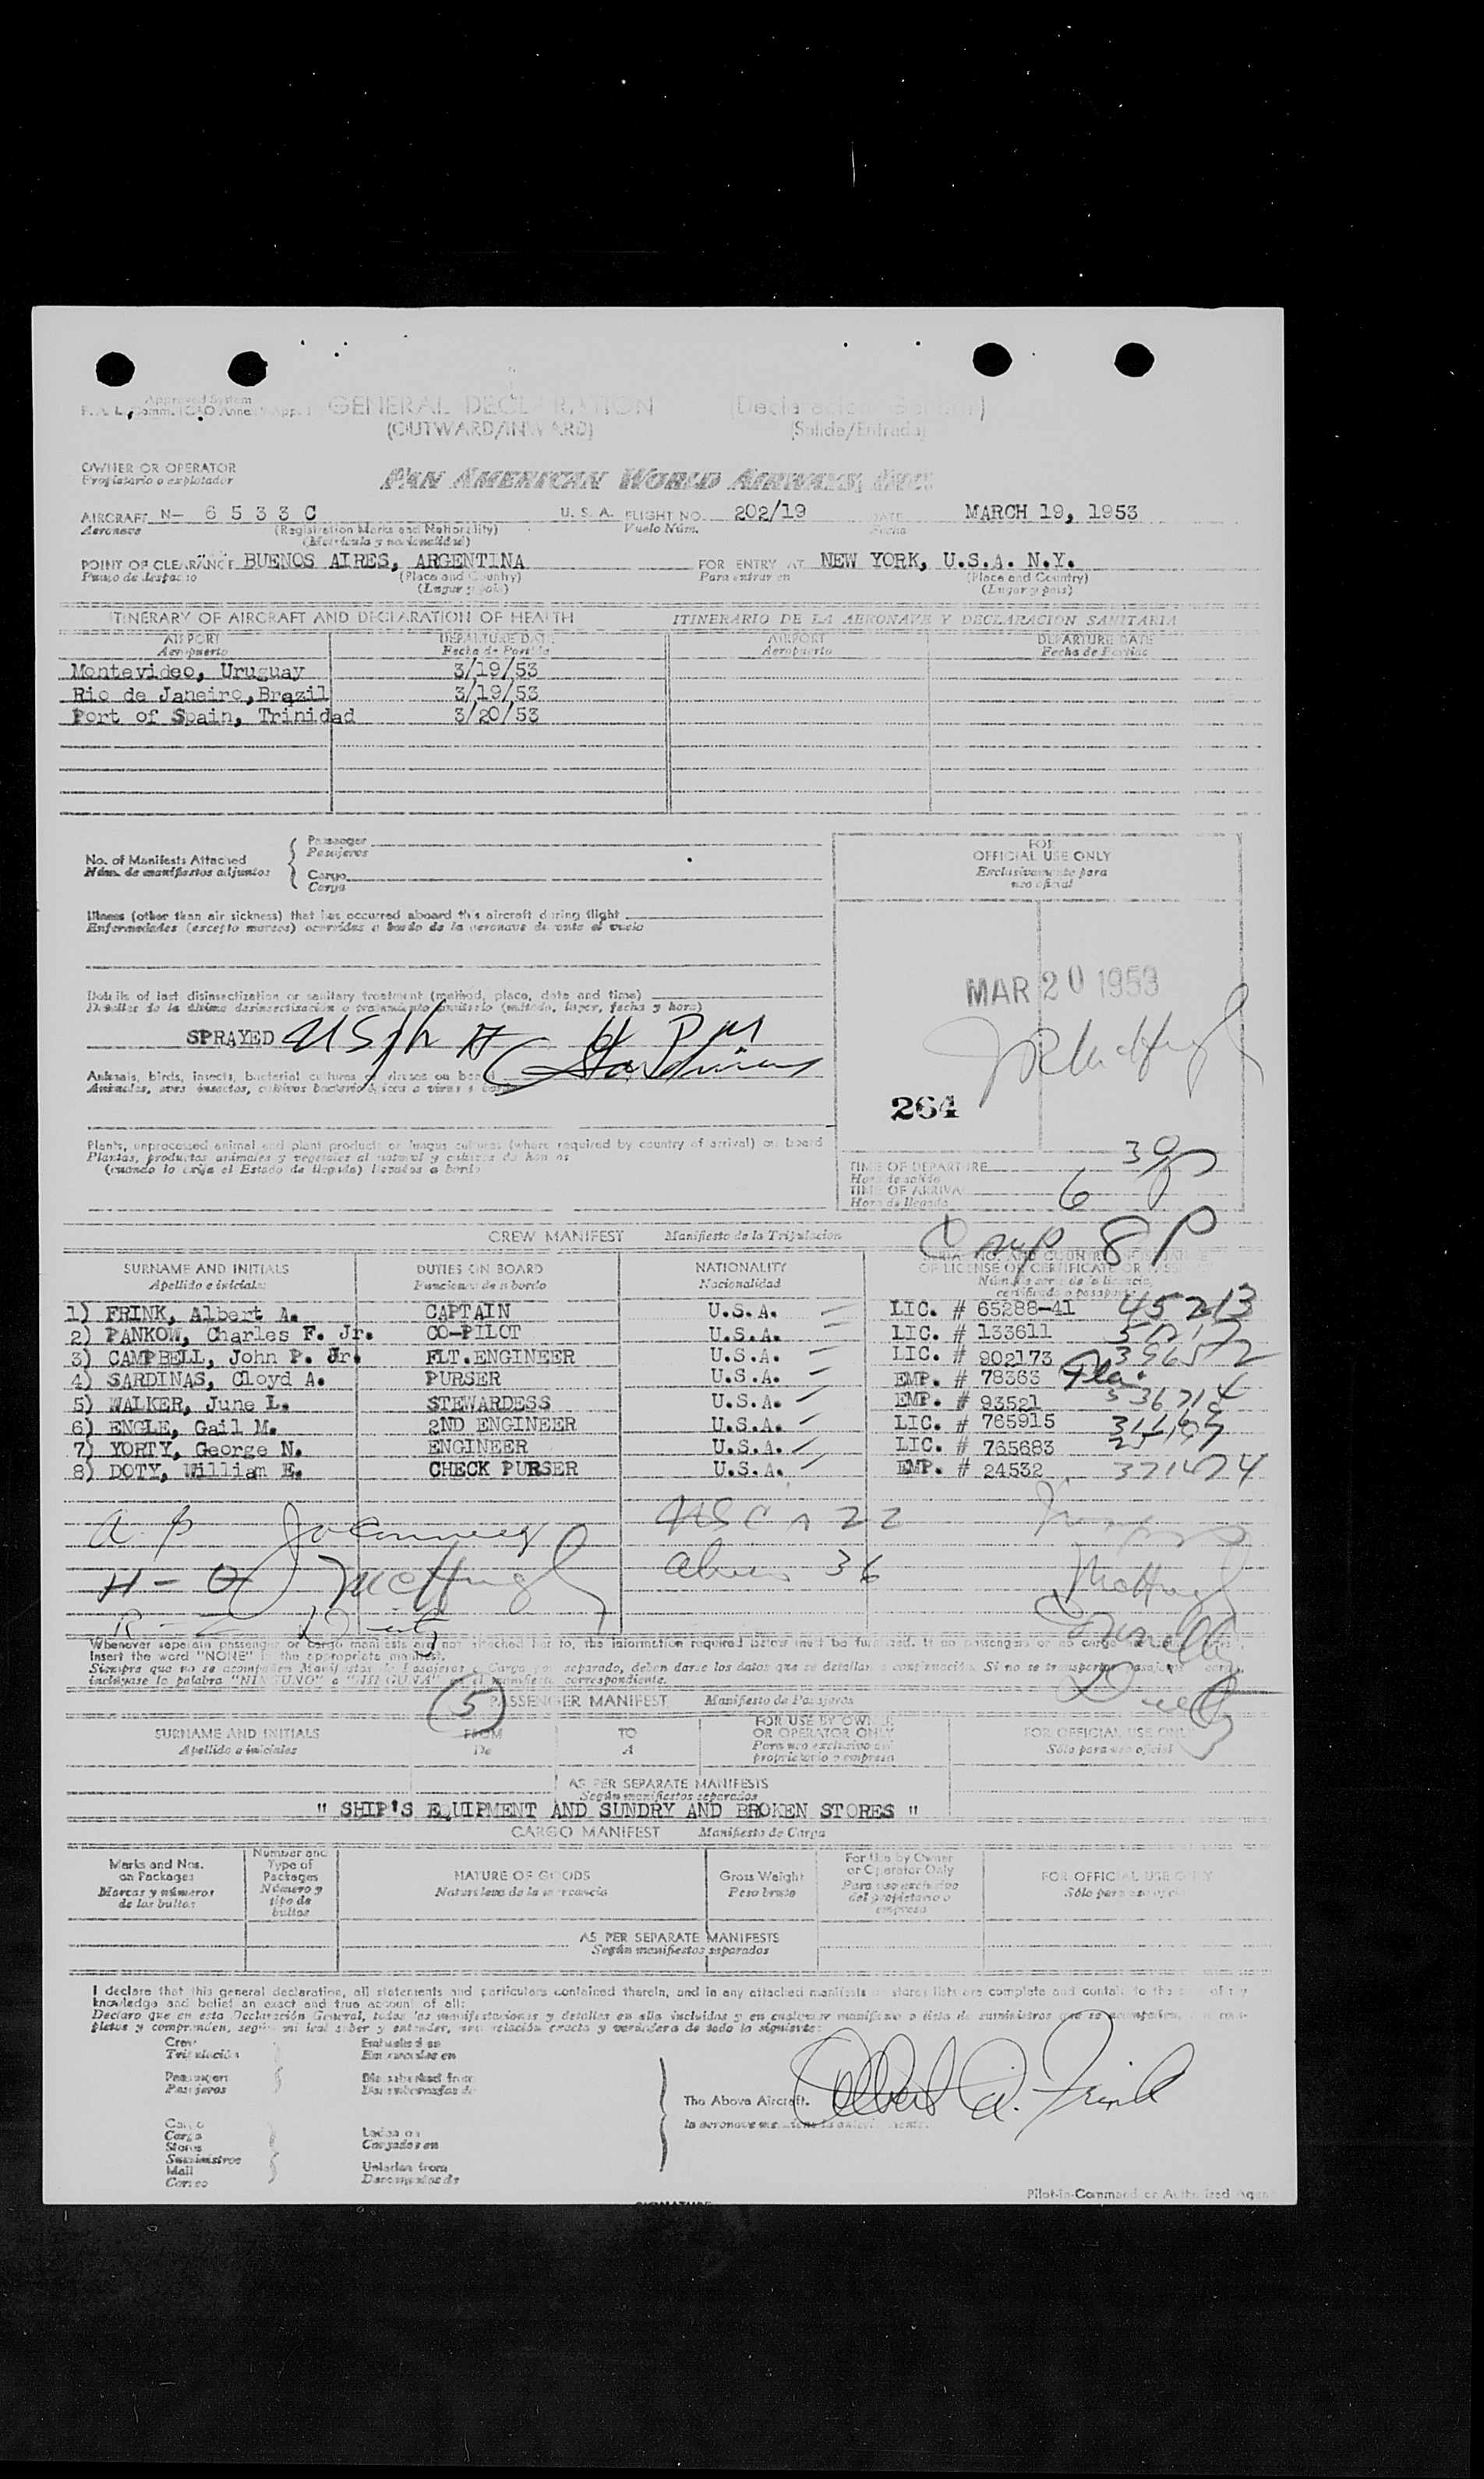 Approved System
GENERAL DECLARATION
(OUTWARD/INWARD)
(Salida/Entrada)
OWNER OR OPERATOR
Propietario o explotador
PAN AMERICAN WORLD AIRWAYS, INC.
AIRCRAFT N- 6 5 3 3 C U. S. A. FLIGHT NO. 202/19 DATE MARCH 19, 1953
Aeronave (Registration Marks and Nationality) Vuelo Núm. Fecha
(Matrícula y nacionalidad)
POINT OF CLEARANCE BUENOS AIRES, ARGENTINA FOR ENTRY AT NEW YORK, U.S.A. N.Y.
Punto de despacho (Place and Country) Para entrar en (Place and Country)
(Lugar y país) (Lugar y país)
ITINERARY OF AIRCRAFT AND DECLARATION OF HEALTH ITINERARIO DE LA AERONAVE Y DECLARACION SANITARIA
AIRPORT DEPARTURE DATE AIRPORT DEPARTURE DATE
Aeropuerto Fecha de Partida Aeropuerto Fecha de Partida
Montevideo, Uruguay 3/19/53
Rio de Janeiro,Brazil 3/19/53
Port of Spain, Trinidad 3/20/53
No. of Manifests Attached
Núm. de manifiestos adjuntos
Passenger
Pasajeros
Cargo
Carga
FOR
OFFICIAL USE ONLY
Exclusivamente para
uso oficial
Illness (other than air sickness) that has occurred aboard this aircraft during flight
Enfermedades (excepto mareos) ocurridas a bordo de la aeronave durante el vuelo
MAR 20 1953
Details of last disinsectization or sanitary treatment (method, place, date and time)
Detalles de la última desinsectización o tratamiento sanitario (método, lugar, fecha y hora)
SPRAYED
Animals, birds, insects, bacterial cultures or viruses on board
264
Plants, unprocessed animal and plant products or fungus cultures (where required by country of arrival) on board
Plantas, productos animales y vegetales al natural y cultivos de hongos
(cuando lo exija el Estado de llegada) llevados a bordo
TIME OF DEPARTURE
Hora de salida
TIME OF ARRIVAL 6 30 P
Hora de llegada
8 P
CREW MANIFEST Manifiesto de la Tripulación
SURNAME AND INITIALS DUTIES ON BOARD NATIONALITY OF LICENSE OR CERTIFICATE OR PASSPORT
Apellido e iniciales Funciones de a bordo Nacionalidad Núm. de serie de la licencia,
certificado o pasaporte
1) FRINK, Albert A. CAPTAIN U.S.A. LIC. # 65288-41 45213
2) PANKOW, Charles F. Jr. CO-PILOT U.S.A. LIC. # 133611
3) CAMPBELL, John P. Jr. FLT.ENGINEER U.S.A. LIC. # 902173 396572
4) SARDINAS, Cloyd A. PURSER U.S.A. EMP. # 78363 Fla.
5) WALKER, June L. STEWARDESS U.S.A. EMP. # 93521 536714
6) ENGLE, Gail M. 2ND ENGINEER U.S.A. LIC. # 765915
7) YORTY, George N. ENGINEER U.S.A. LIC. # 765683
8) DOTY, William E. CHECK PURSER U.S.A. EMP. # 24532 371474
USC 22
McHugh
Alien 36
Whenever separate passenger or cargo manifests are not attached hereto, the information required below must be furnished. If no passengers or no cargo
Insert the word "NONE" in the appropriate manifest.
Siempre que no se acompañen Manifiestos de Pasajeros o Carga por separado, deben darse los datos que se detallan a continuación. Si no se transportan pasajeros
inclúyase la palabra "NINGUNO" o "NINGUNA" en el manifiesto correspondiente.
5
PASSENGER MANIFEST Manifiesto de Pasajeros
SURNAME AND INITIALS FROM TO FOR USE BY OWNER OR OPERATOR ONLY FOR OFFICIAL USE ONLY
Apellido e iniciales De A Para uso exclusivo del propietario o empresa Sólo para uso oficial
AS PER SEPARATE MANIFESTS
Según manifiestos separados
" SHIP'S EQUIPMENT AND SUNDRY AND BROKEN STORES "
CARGO MANIFEST Manifiesto de Carga
Marks and Nos. on Packages Number and Type of Packages NATURE OF GOODS Gross Weight For Use by Owner or Operator Only FOR OFFICIAL USE ONLY
Marcas y números de los bultos Número y tipo de bultos Naturaleza de la mercancía Peso bruto Para uso exclusivo del propietario o empresa Sólo para uso oficial
AS PER SEPARATE MANIFESTS
Según manifiestos separados
I declare that this general declaration, all statements and particulars contained therein, and in any attached manifests or stores lists are complete and contain to the best of my
knowledge and belief an exact and true account of all:
Declaro que en esta Declaración General, todas las manifestaciones y detalles en ella incluidos y en cualquier manifiesto o lista de suministros que se acompañen, son com-
pletos y comprenden, según mi leal saber y entender, una relación exacta y verdadera de todo lo siguiente:
Crew Embarked on
Tripulación Embarcados en
Passengers Disembarked from
Pasajeros Desembarcados de
The Above Aircraft.
Albert A. Frink
Cargo
Carga Laden on
Stores Cargados en
Suministros
Mail Unladen from
Correo Descargados de
Pilot-in-Command or Authorized Agent
SIGNATURE